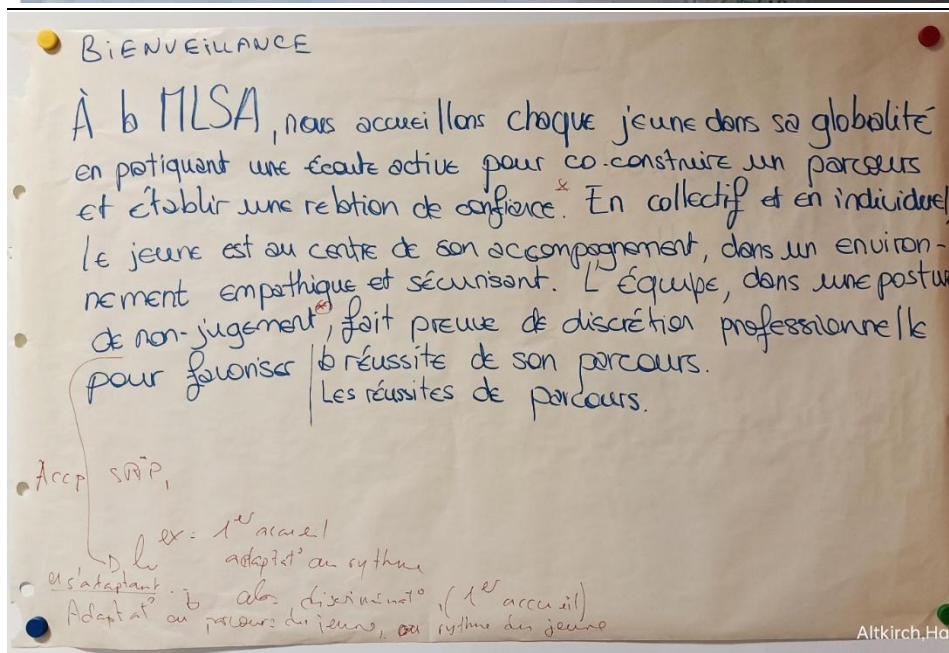 BIENVEILLANCE
À la MLSA, nous accueillons chaque jeune dans sa globalité
en pratiquant une écoute active pour co-construire un parcours
et établir une relation de confiance. En collectif et en individuel,
le jeune est au centre de son accompagnement, dans un environ-
nement empathique et sécurisant. L'équipe, dans une postu
de non-jugement, fait preuve de discrétion professionnelle
pour favoriser la réussite de son parcours.
Les réussites de parcours.
Accp
ex: 1er accueil
adaptat° au rythme
en s'adaptant
discriminat°, (1er accueil)
Adaptat° au parcours du jeune, au rythme du jeune
Altkirch, Ha